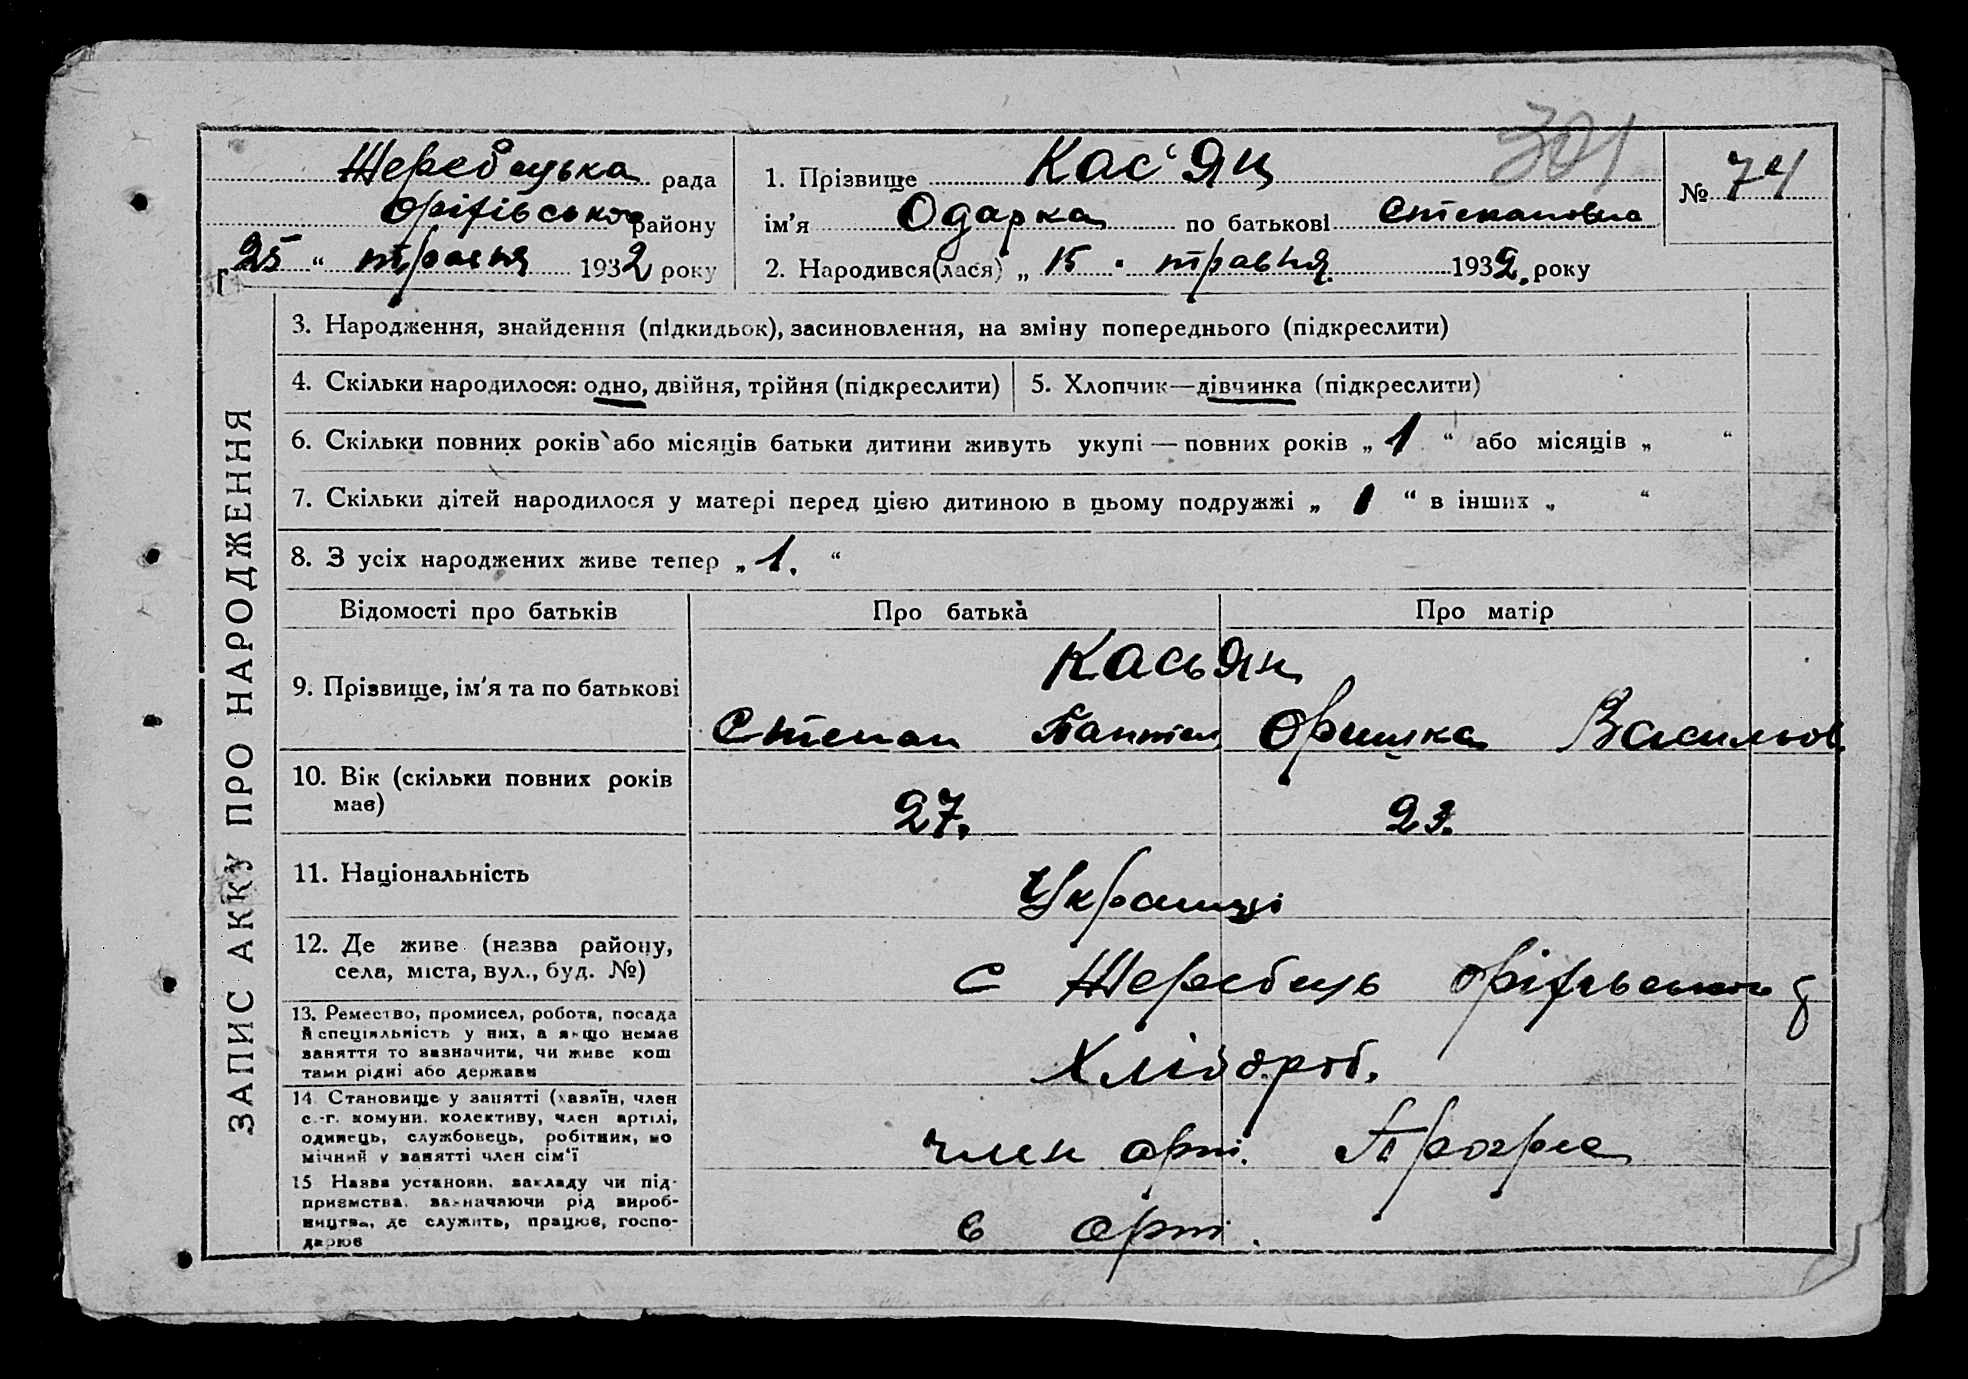 301
Жеребецька рада
Оріхівсько району
„25“ травня 1932 року
1. Прізвище Кас'ян
№ 74
ім'я Одарка по батькові Степановна
2. Народився(лася) „15" травня 1932. року
ЗАПИС АККУ ПРО НАРОДЖЕННЯ
3. Народження, знайдення (підкидьок), засиновлення, на зміну попереднього (підкреслити)
4. Скільки народилося: одно, двійня, трійня (підкреслити)
5. Хлопчик—дівчинка (підкреслити)
6. Скільки повних років або місяців батьки дитини живуть укупі — повних років „1“ або місяців „ “
7. Скільки дітей народилося у матері перед цією дитиною в цьому подружжі „1“ в інших „ “
8. З усіх народжених живе тепер „1.“
Відомості про батьків
Про батька
Про матір
9. Прізвище, ім'я та по батькові
Касьян
Степан Пантел
Оришка Васильов.
10. Вік (скільки повних років
має)
27.
23.
11. Національність
Українці
12. Де живе (назва району,
села, міста, вул., буд. №)
с Жеребець Оріхівського
13. Ремество, промисел, робота, посада
й спеціяльність у них, а якщо немає
заняття то зазначити, чи живе кош
тами рідні або держави
Хлібороб.
14 Становище у занятті (хазяїн, член
с.-г. комуни, колективу, член артілі,
одинець, службовець, робітник, по
мічний у занятті член сім'ї
член арті. Прогре
15 Назва установи, закладу чи під-
приємства, зазначаючи рід вироб-
ництва, де служить, працює, госпо-
дарює
в арті.